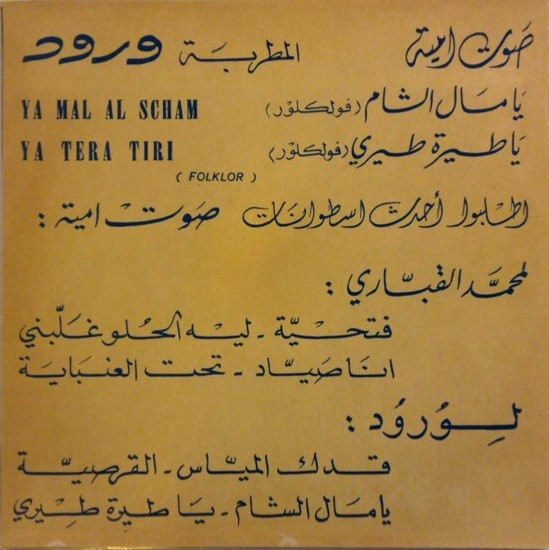 صَوت امية المطربَة ورود
يَا مَال الشام (فولكلوْر) YA MAL AL SCHAM
يَا طيرة طيري (فولكلوْر) YA TERA TIRI
( FOLKLOR )
اطلبوا أحدث اسطوانات صَوت امية :
لمحمَّد القبَّاري :
فتحيَّة - ليه الحُلو غلّبني
انَا صَيَّاد - تحت العنبَايَة
لِورُود :
قدك الميَّاس - القرصيَّة
يا مَال الشام - يَا طيرة طِيري